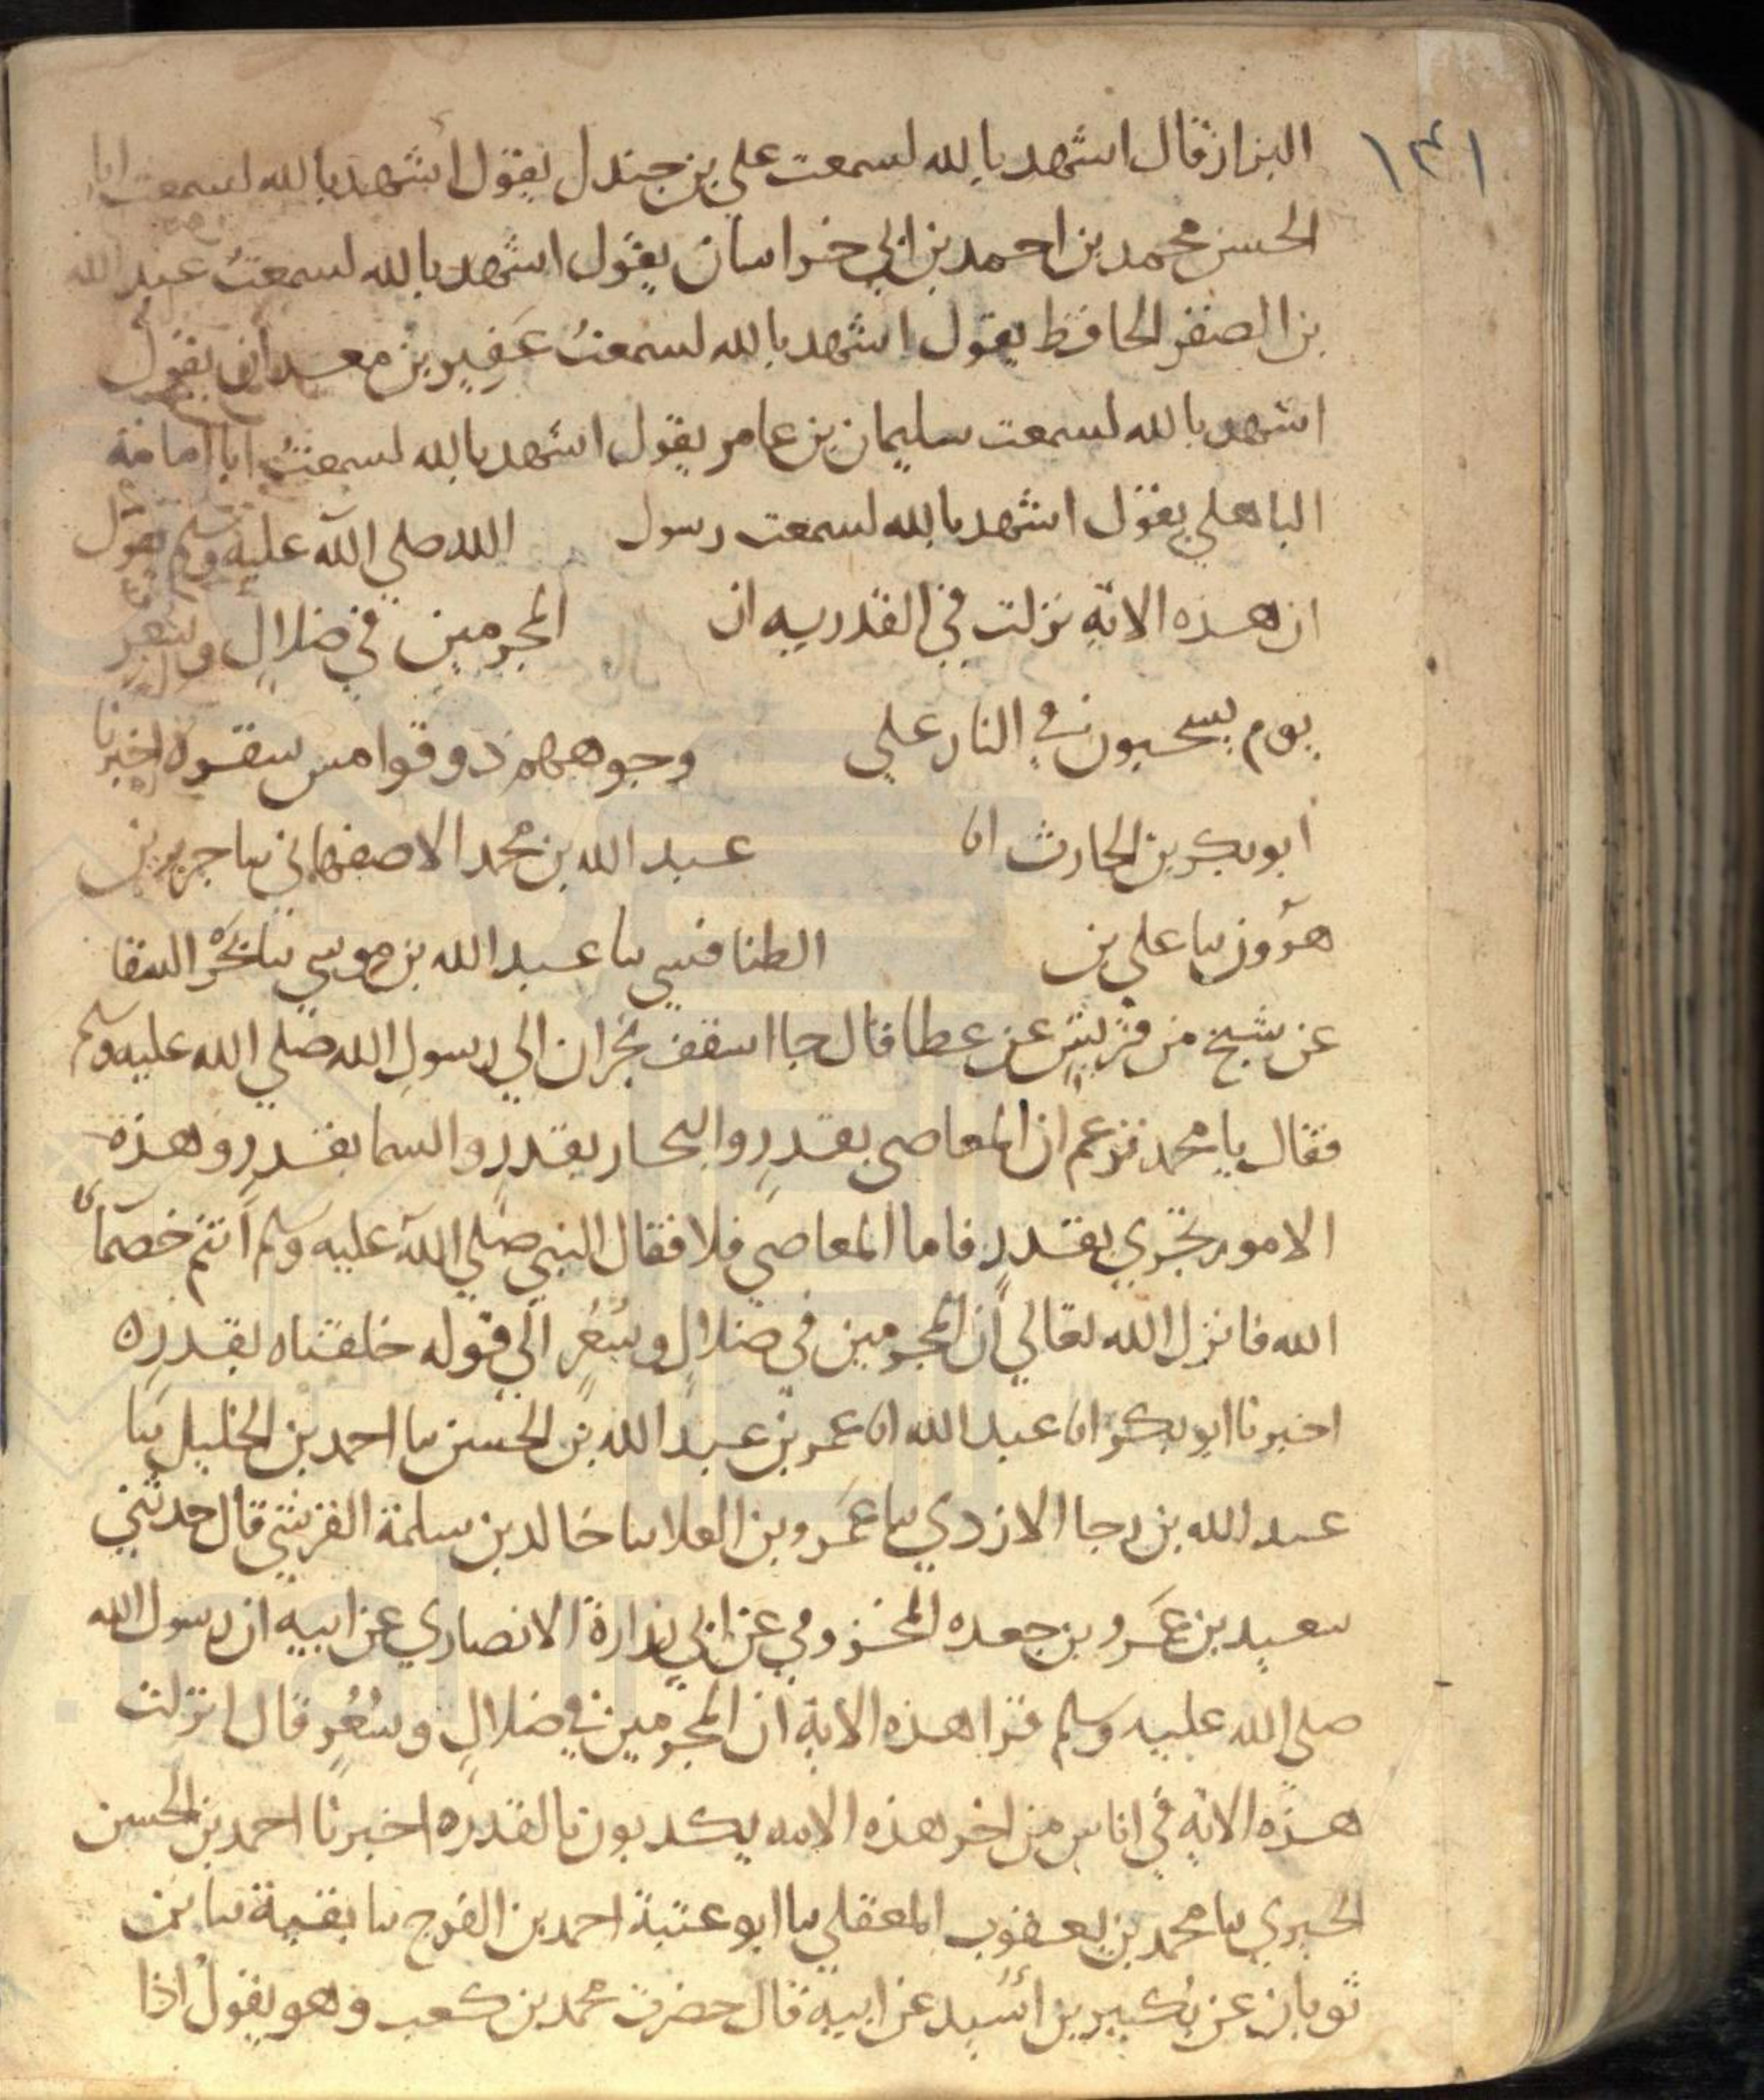 ١٣١
البزاز قال اشهد بالله لسمعت علي بن جندل يقول اشهد بالله لسمعت ابا
الحسن محمد بن احمد بن ابي خراسان يقول اشهد بالله لسمعتُ عبد الله
بن الصقر الحافظ يقول اشهد بالله لسمعتُ عَفِير بن معدان يقول
اشهد بالله لسمعت سليمان بن عامر يقول اشهد بالله لسمعتُ ابا امامة
الباهلي يقول اشهد بالله لسمعت رسول الله صلي الله عليه وسلم يقول
ان هذه الاية نزلت في القدريه ان المجرمين في ضلالٍ وسُعرٍ
يوم يسحبون في النار علي وجوههم ذوقوا مس سقره اخبرنا
ابو بكر بن الحارث انا عبد الله بن محمد الاصفهاني سا جرير بن
هرون سا علي بن الطنافسي سا عبد الله بن موسي سا بحر السقا
عن شيخ من قريشٍ عن عطا قال جا اسقف نجران الي رسولِ الله صلي الله عليه وسلم
فقال يا محمد تزعم ان المعاصي بقدرٍ والبحار بقدرٍ والسما بقدرٍ وهذه
الامور تجري بقدرٍ فاما المعاصي فلا فقال النبي صلي الله عليه وسلم انتم خصمآ
الله فانزل الله تعالي ان المجرمين في ضلالٍ وسُعُرٍ الي قوله خلقناه بقدره
اخبرنا ابو بكر انا عبد الله انا عمر بن عبد الله بن الحسن سا احمد بن الخليل سا
عبد الله بن رجا الازدي سا عَمرو بن العلا سا خالد بن سلمة القرشي قال حدثني
سعيد بن عَمرو بن جعده المخزومي عن ابي زرارة الانصاري عن ابيه ان رسول الله
صلى الله عليه وسلم قرا هذه الاية ان المجرمين في ضلالٍ وسُعُرٍ قال انزلت
هذه الاية في اناس من اخر هذه الامه يكذبون بالقدره اخبرنا احمد بن الحسن
الحيري سا محمد بن يعقوب المعقلي سا ابو عتبة احمد بن الفرج سا بقية سا بن
ثوبان عن بُكير بن اُسَيد عن ابيه قال حضرت محمد بن كعب وهو يقول اذا